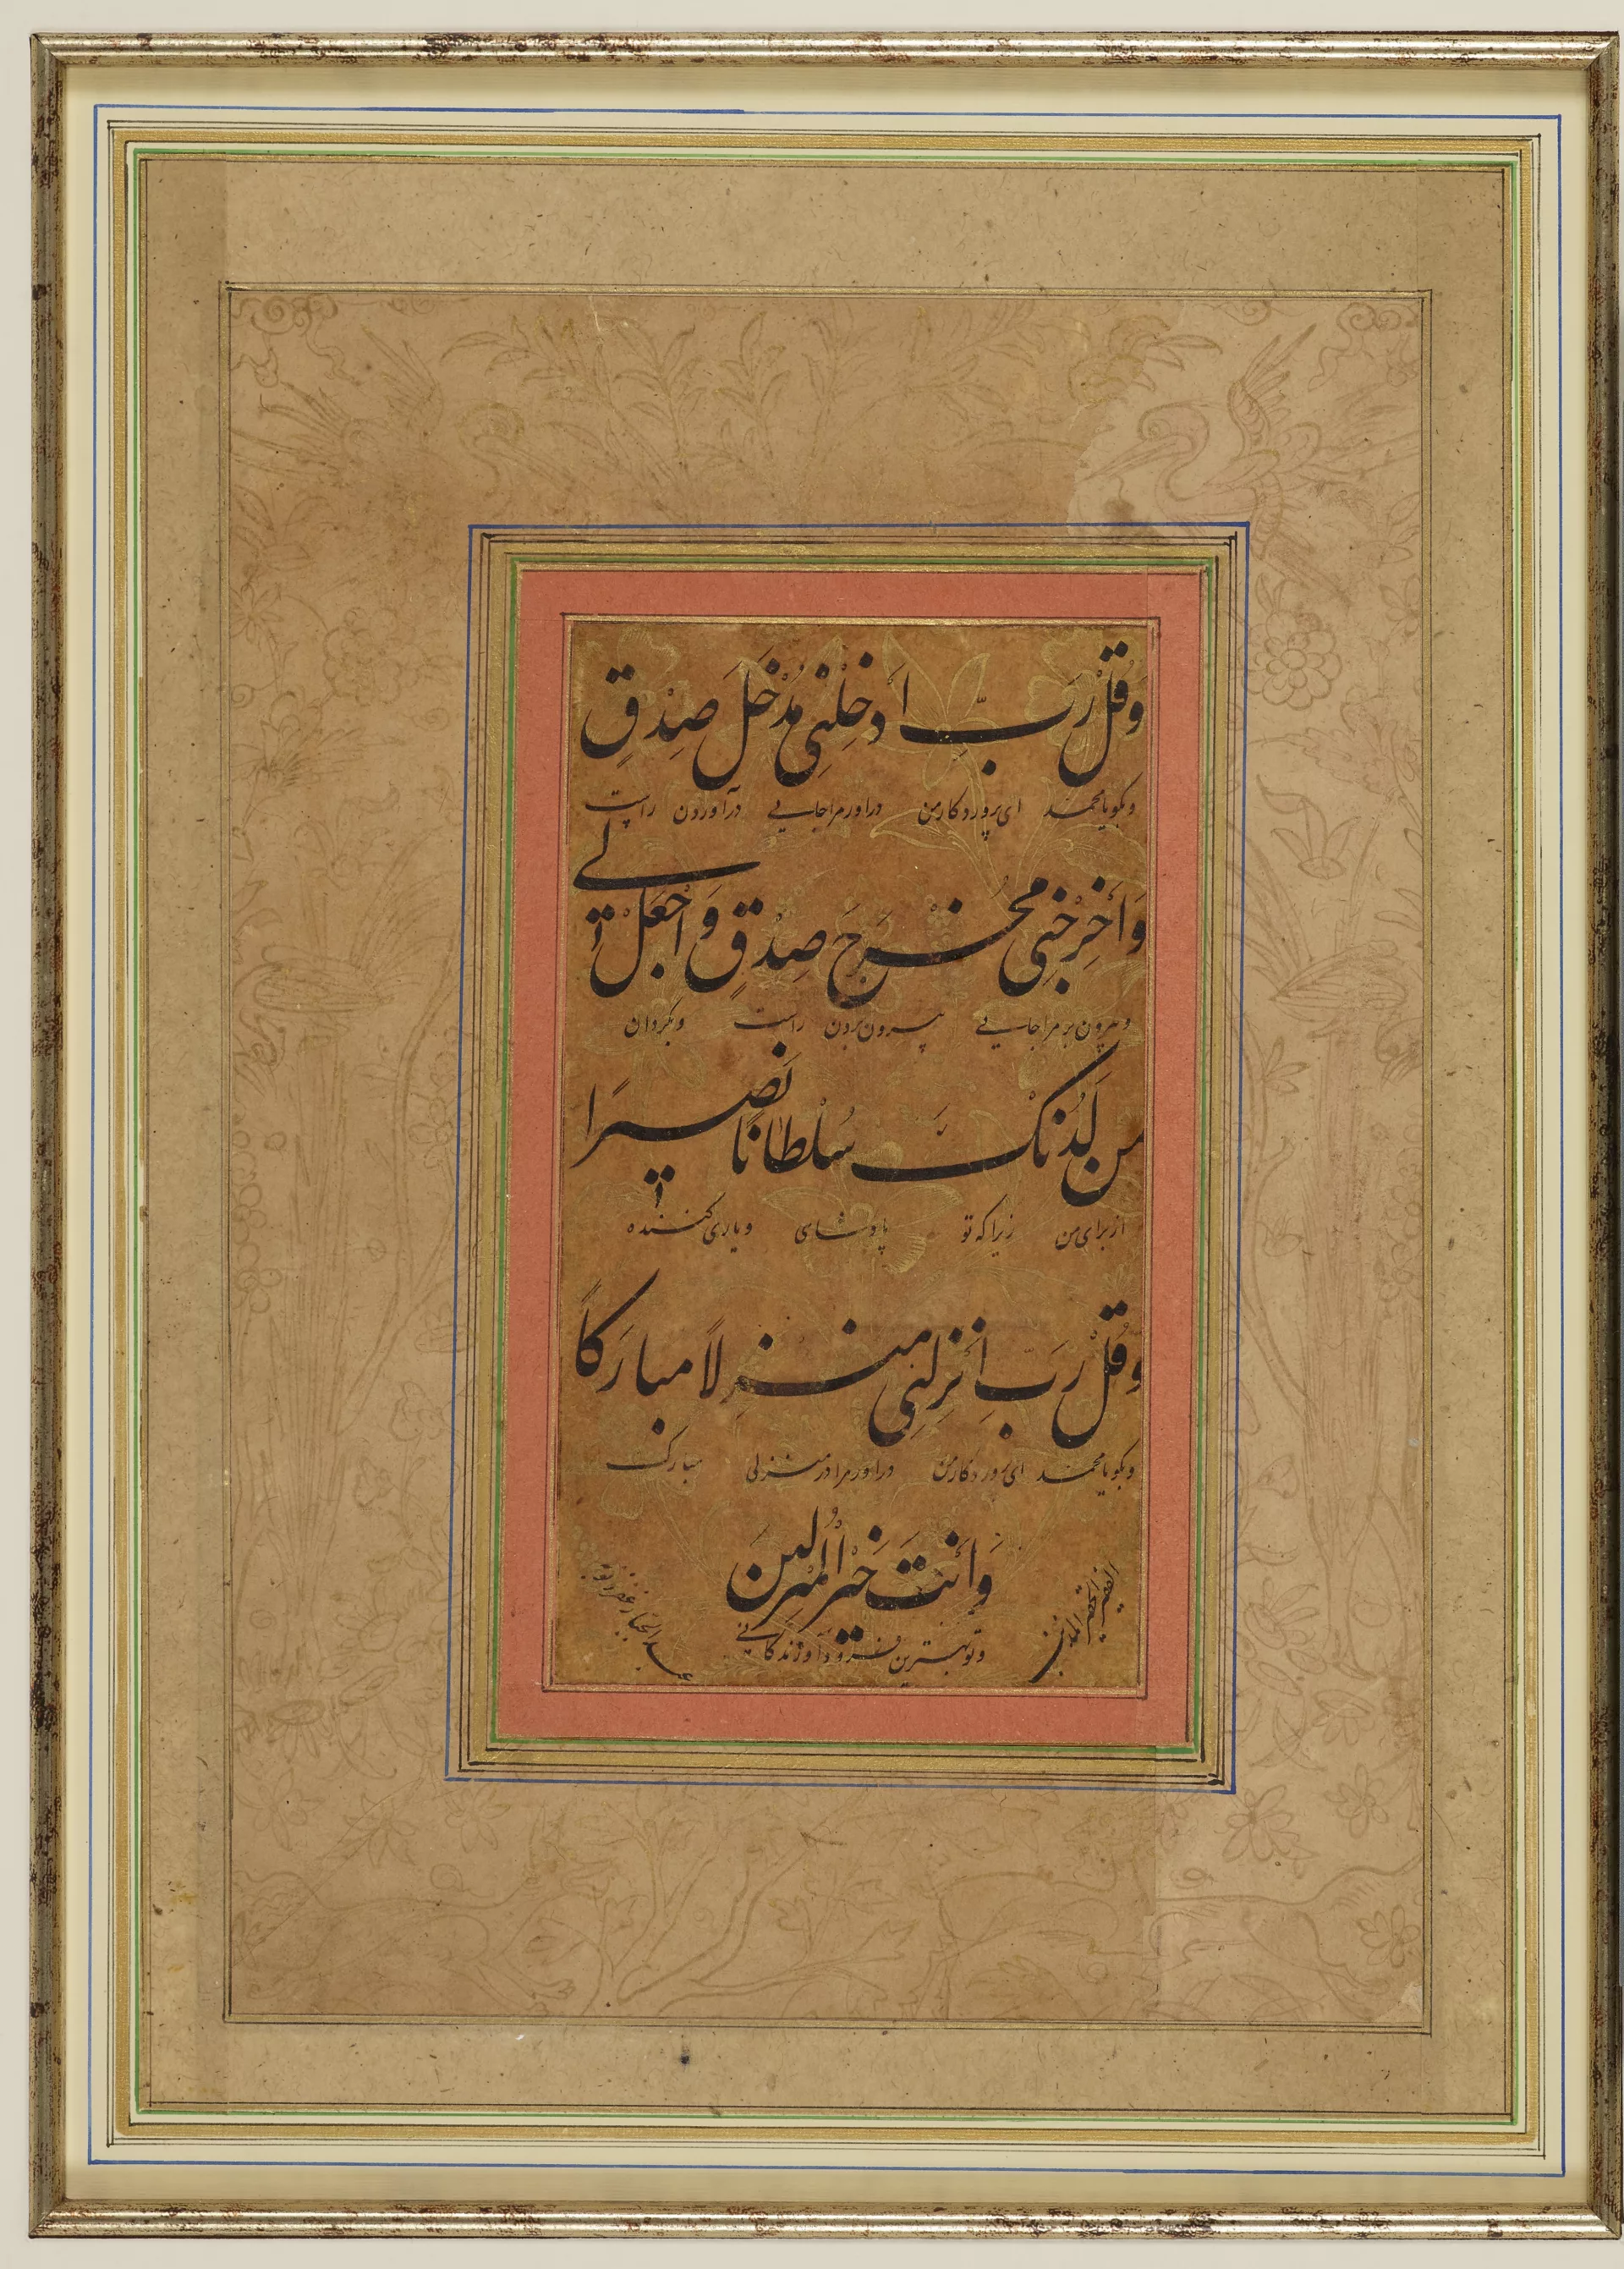 وَقُلْ رَبِّ اَدْخِلْنِی مُدْخَلَ صِدْقٍ
وبکو یا محمد ای پروردکار من دراور مرا جایی درآوردن راست
وَاَخْرِجْنِی مُخْرَجَ صِدْقٍ وَاجْعَلْ لی
وبیرون بر مرا جایی بیرون بردن راست وبکردان
مِن لَدُنْکَ سُلْطَانًا نَصِیرًا
از برای من زیرا که تو پادشای ویاری کننده
وَقُلْ رَبِّ اَنْزِلْنِی مُنْزَلًا مبارَکًا
وبکو یا محمد ای پروردکار من دراور مرا در منزلی مبارک
وَاَنْتَ خَیْرُ الْمُنْزِلِینَ
وتو بهترین فرود آورندکانی
الفقیر الحقیر المذنب
عبدالجبار غفر ذنوبه